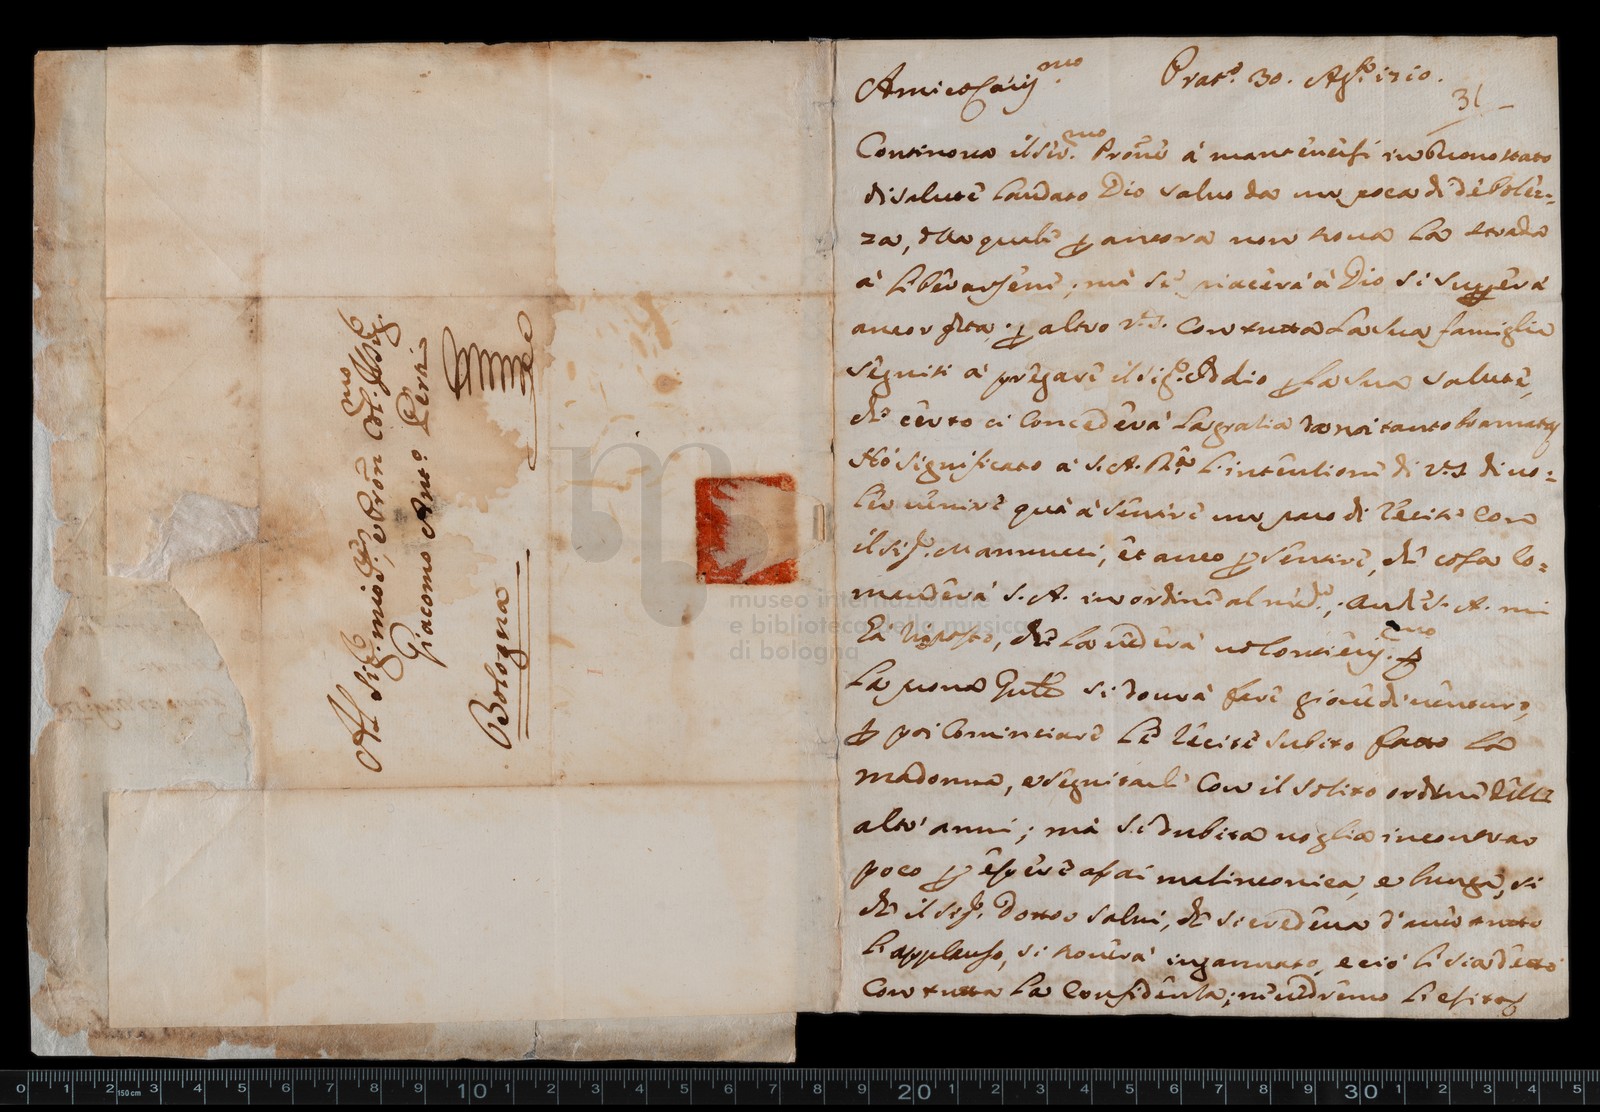 All Sig.r mio Sig.r, e Pron Col.mo il Sig.
Giacomo Ant.o Perti
Bologna
museo internazionale
e biblioteca della musica
di bologna
Amico Cariss.mo Prat.o 30. Ag.to 1710.
31
Continova il Ser.mo Prone à mantenersi in buono stato
di salute laudato Dio salvo da un poca di debolez=
za, dlla quale p ancora non trova la strada
à liberarsene; mà se piacerà à Dio si supererà
ancor qta; p altro V.S. con tutta la sua famiglia
seguiti à pregare il Sig.re Iddio p la sua salute,
che certo ci concederà la gratia da noi tanto bramata
Hò significato à S.A. l'intentione di V.S. di vo=
ler venire quà à sentire un paro di recite con
il Sig.r Mannucci, et anco p sentire, che cosa co=
manderà S.A. in ordine al med.o; Anche S.A. mi
hà risposto, che la vederà volontieriss.mo
La prova si dovrà fare giovedi venturo,
p poi cominciare le recite subito fatto la
madonna, e seguitarle con il solito ordine delli
altr' anni; mà si dubita voglia incontrar
poco p essere assai malinconica, e lunga, si
che il Sig.r Dottor Salvi, che si credeva d'aver tutto
l'applauso, si troverà ingannato, e ciò li sia detto
con tutta la confidenza; ne vedremo l'esito